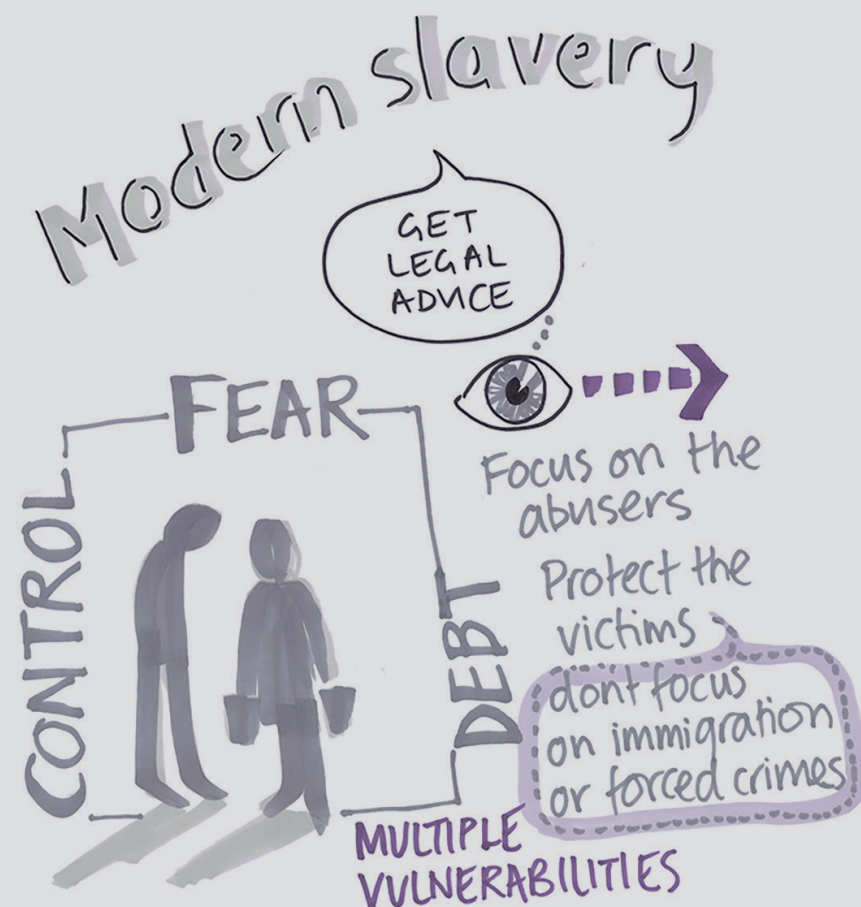 Modern slavery
GET
LEGAL
ADVICE
FEAR
CONTROL
DEBT
Focus on the
abusers
Protect the
victims
dont focus
on immigration
or forced crimes
MULTIPLE
VULNERABILITIES